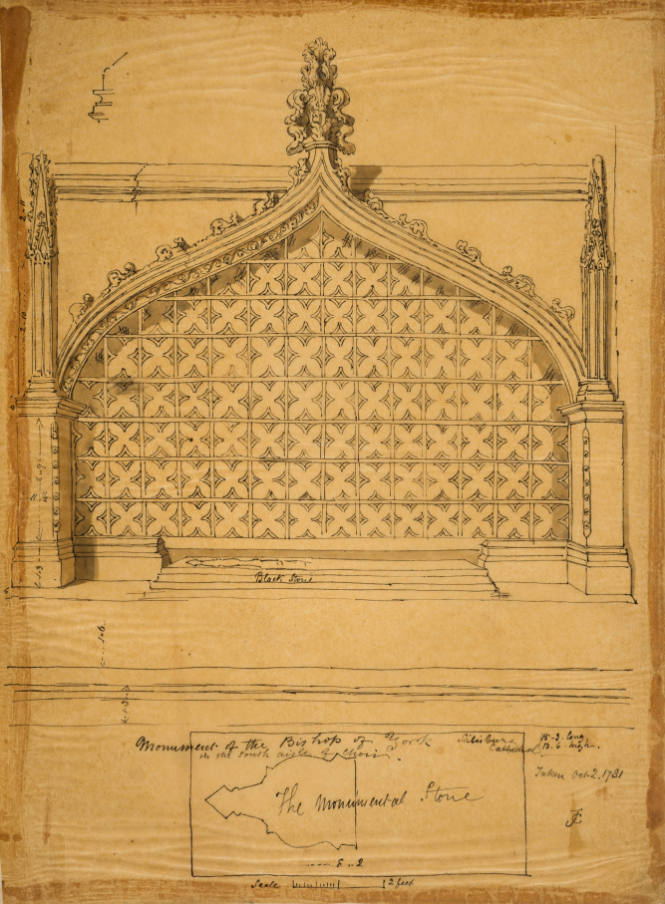 2-11
2-10
Black Stone
1-6
Monument of the Bishop of York
in the South aisle of Choir.
Salisbury
Cathedral
15-3 long
13.6 high.
Taken Oct 2. 1781
The Monumental Stone
8 .. 2
Scale
2 feet